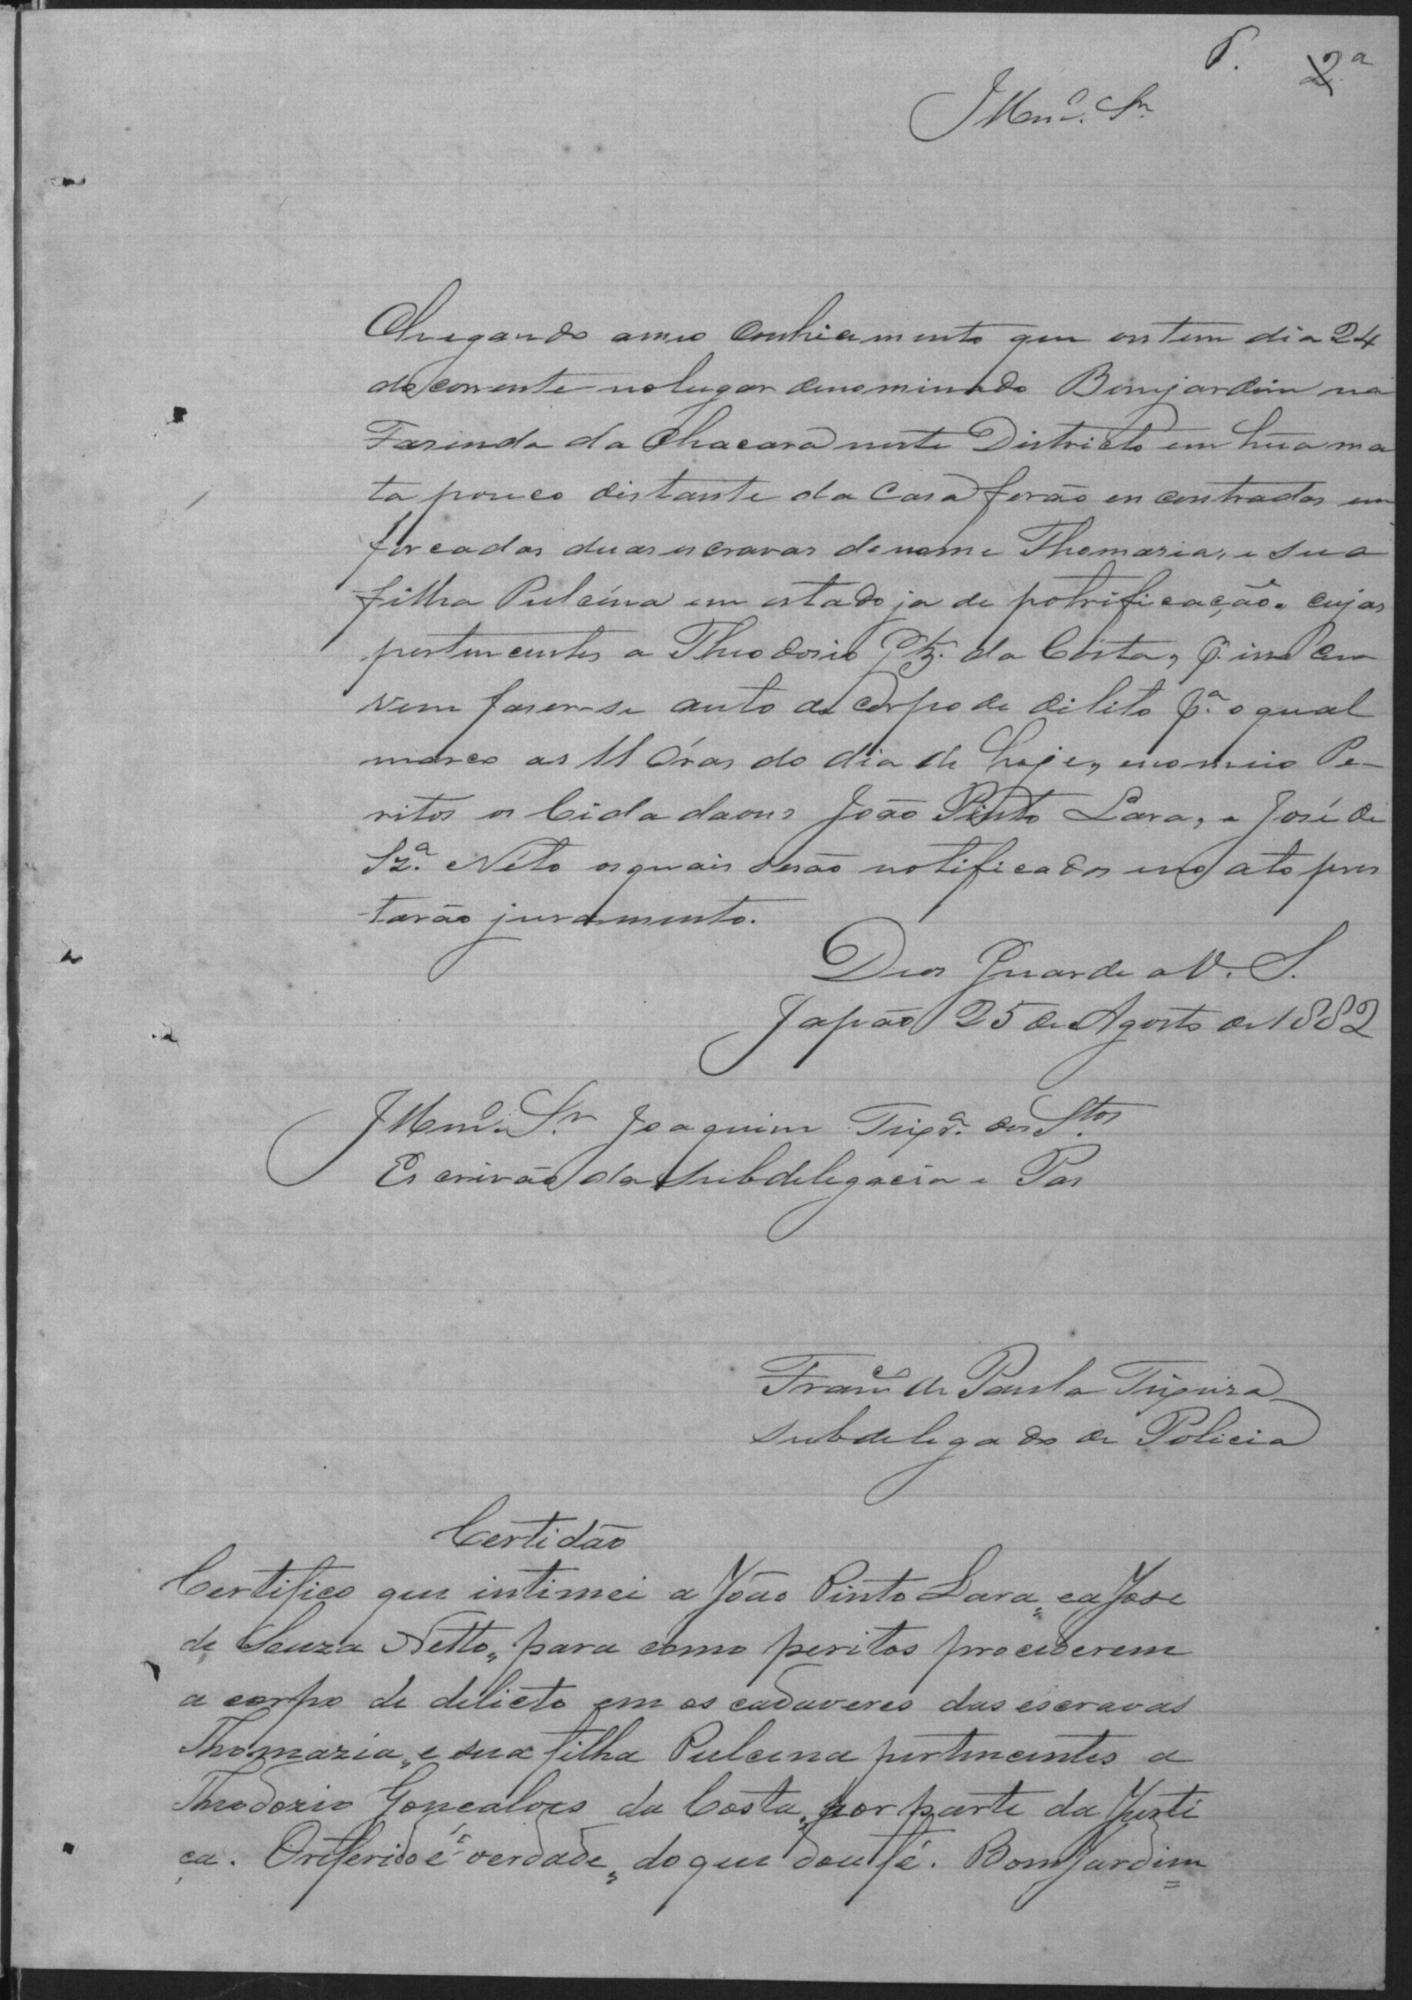 6. 2ª
Illmº. Sr.
Chegando a meo conhicimento que ontem dia 24
do corrente no lugar denominado Bomjardim na
Fazenda da Chacara neste Districto em hũa ma
ta pouco distante da casa forão encontradas em
forcadas duas escravas de nome Thomazia, e sua
filha Pulcina em estado ja de potrificação. cujas
pertencentes a Theodosio Glz. da Costa, p. isso con
vem faser-se auto de corpo de dilito pª. o qual
marco as 11 óras do dia de hoje, e nomeio Pe-
ritos os Cidadaons João Pinto Lara, e José de
Szª. Néto os quais serão notificados e no ato pres
tarão juramento.
Deos Guarde a V. S.
Japão 25 de Agosto de 1882
Illmº. Sr. Joaquim Teixrª. dos Stos
Escrivão da Subdelegacia e Pas
Franco de Paula Teixeira
Subdelegado de Policia
Certidão
Certifico que intimei a João Pinto Lara, e a Jose
de Souza Netto, para como peritos procederem
a corpo de delicto em os cadaveres das escravas
Thomazia, e sua filha Pulcina pertencentes a
Theodozio Goncalves da Costa, por parte da Justi
ça. O referido é verdade, do que dou fé. Bomjardim